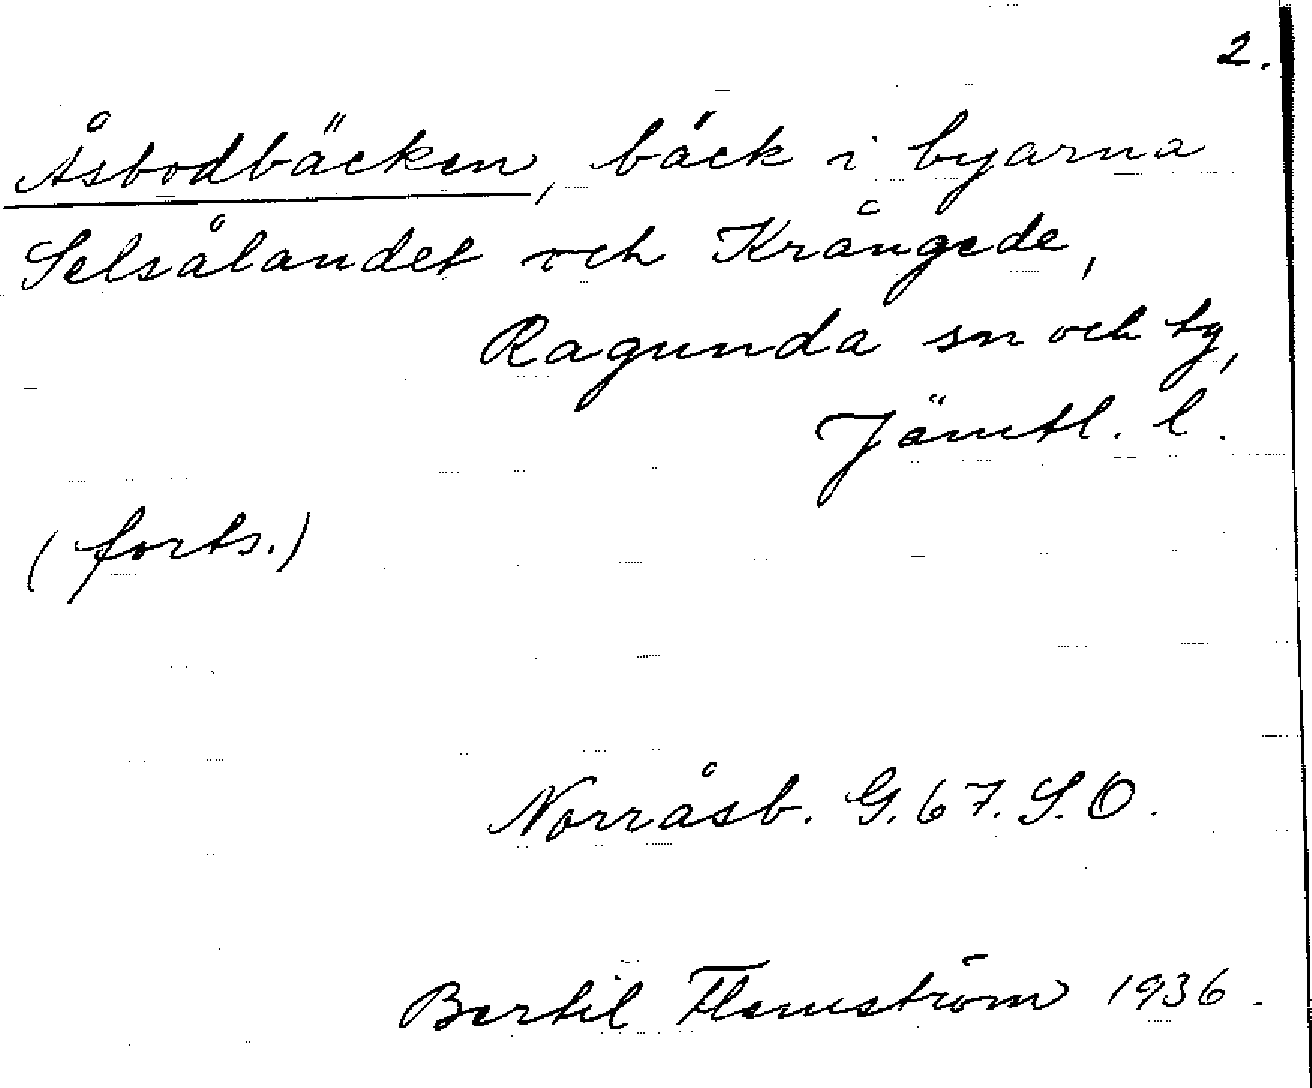 2.
Åsbodbäcken, bäck i byarna
Selsålandet och Krångede,
Ragunda sn och tg,
Jämtl. l.
(forts.)
Norråsb. G. 67. S. O.
Bertil Flemström 1936.